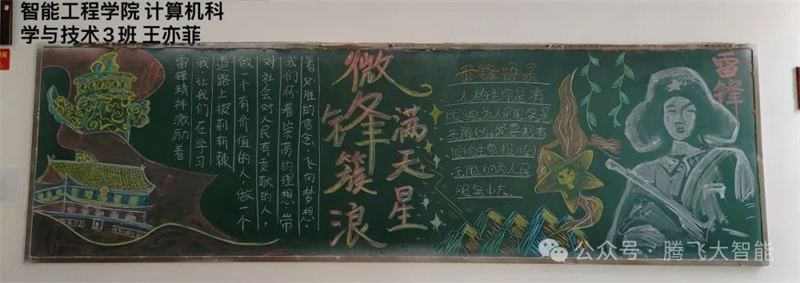 智能工程学院 计算机科
学与技术3班 王亦菲
微锋簇浪
满天星
雷锋精神激励着
我让我们在学习
道路上披荆斩棘
做一个有价值的人,做一个
对社会对人民有贡献的人,
我们怀着崇高的理想,带
着必胜的信念,飞向梦想.
雷锋语录
人的生命是有
限的,为人民服务是
无限的,我要把有
限的生命投入到
无限的为人民
服务中去
雷锋
公众号·腾飞大智能